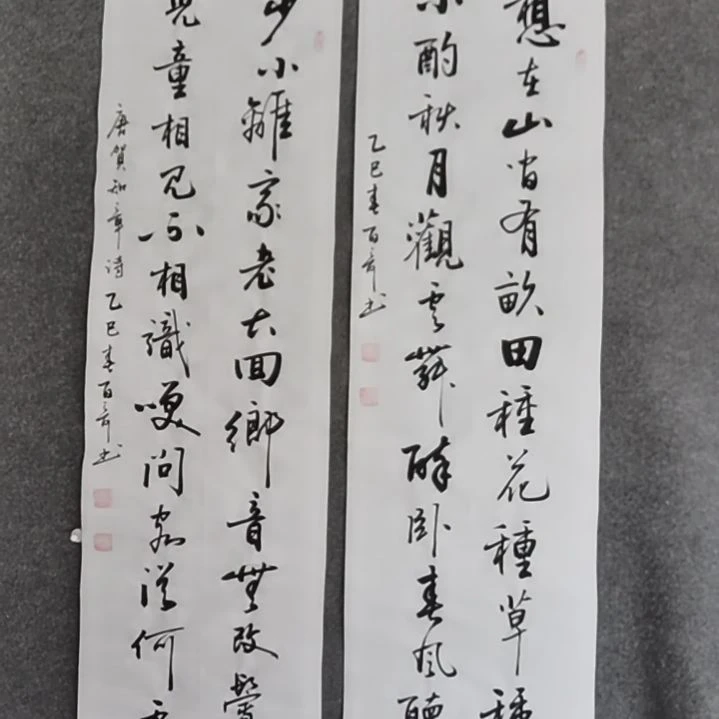 想在山間有畝田種花種草種
小酌秋月觀雲舞醉卧春風聽
乙巳春百书
少小離家老大回鄉音無改鬢
兒童相見不相識咲問客從何
唐賀知章诗乙巳春百书